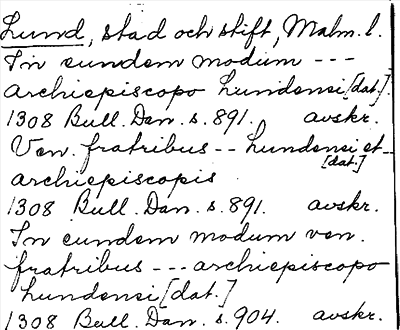 Lund, stad och stift, Malm. l.
In eundem modum ---
archiepiscopo Lundensi [dat.]
1308 Bull. Dan. s. 891. avskr.
Ven. fratribus -- Lundensi et --
[dat.]
archiepiscopis
1308 Bull. Dan. s. 891. avskr.
In eundem modum ven.
fratribus --- archiepiscopo
Lundensi [dat.]
1308 Bull. Dan. s. 904. avskr.